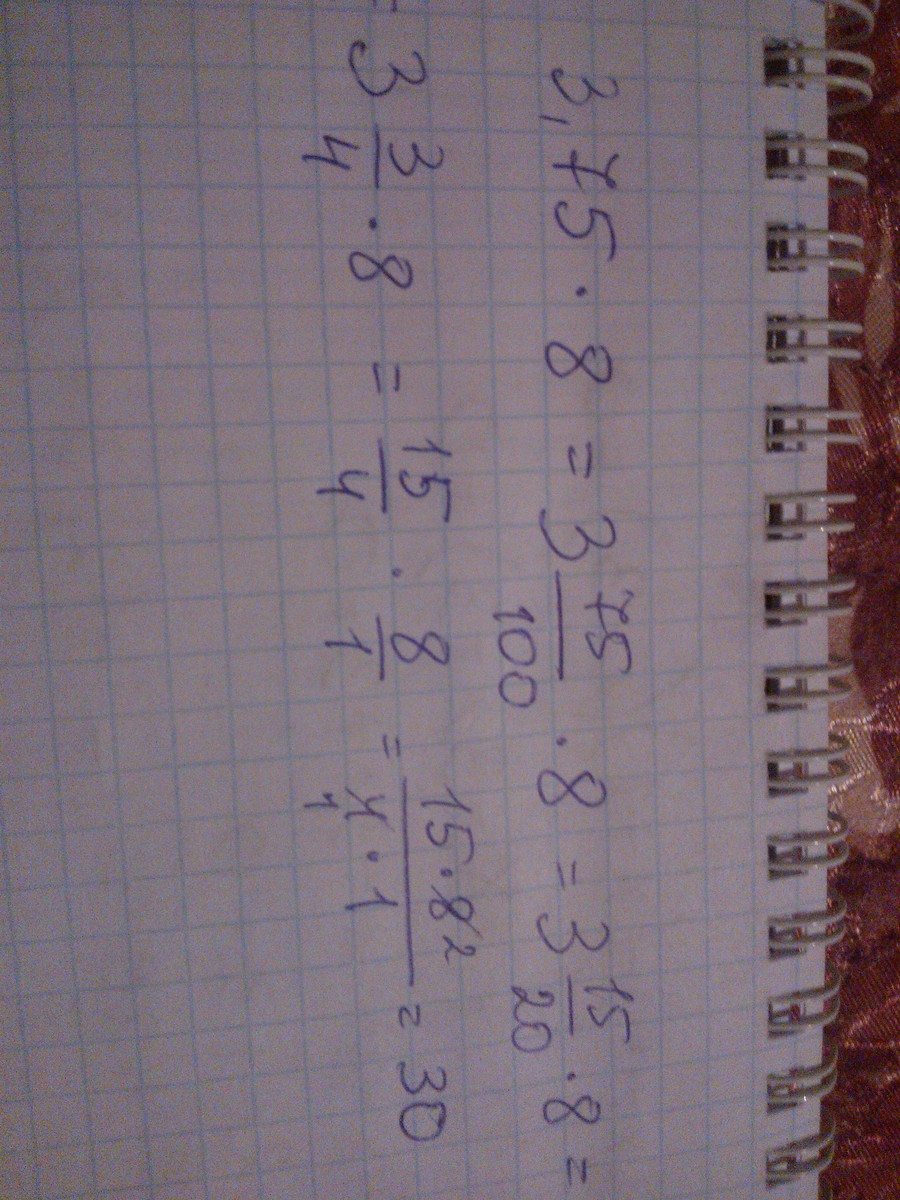 3,75 · 8 = 3 75/100 · 8 = 3 15/20 · 8 =
= 3 3/4 · 8 = 15/4 · 8/1 = 15 · 8 2/4 1 · 1 = 30